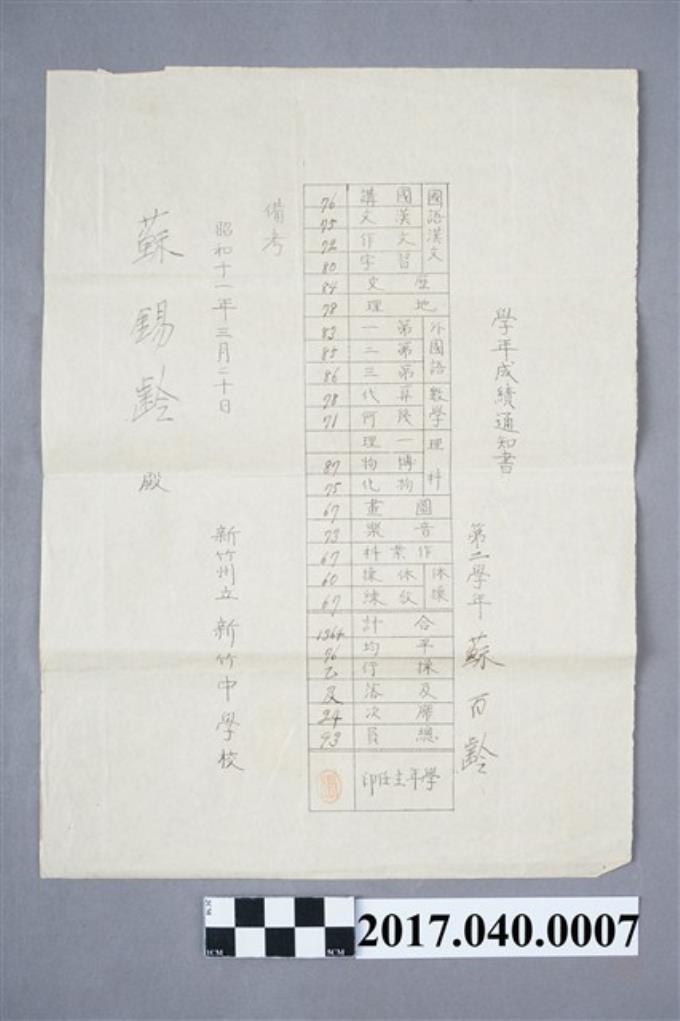 學年成績通知書
第二學年 蘇百齡
國語漢文 國講 76
漢文 75
作文 72
習字 80
歷史 84
地理 78
外國語 第一 83
第二 85
第三 86
數學 算代 78
幾何 71
理科 一理
博物 87
物化 75
圖畫 67
音樂 73
作業科 67
体操 体操 60
教練 67
合計 1364
平均 76
操行 乙
及落 及
席次 24
總員 93
學年主任印
備考
昭和十一年三月二十日
新竹州立新竹中學校
蘇錫齡 殿
2CM
1CM
5CM
2017.040.0007